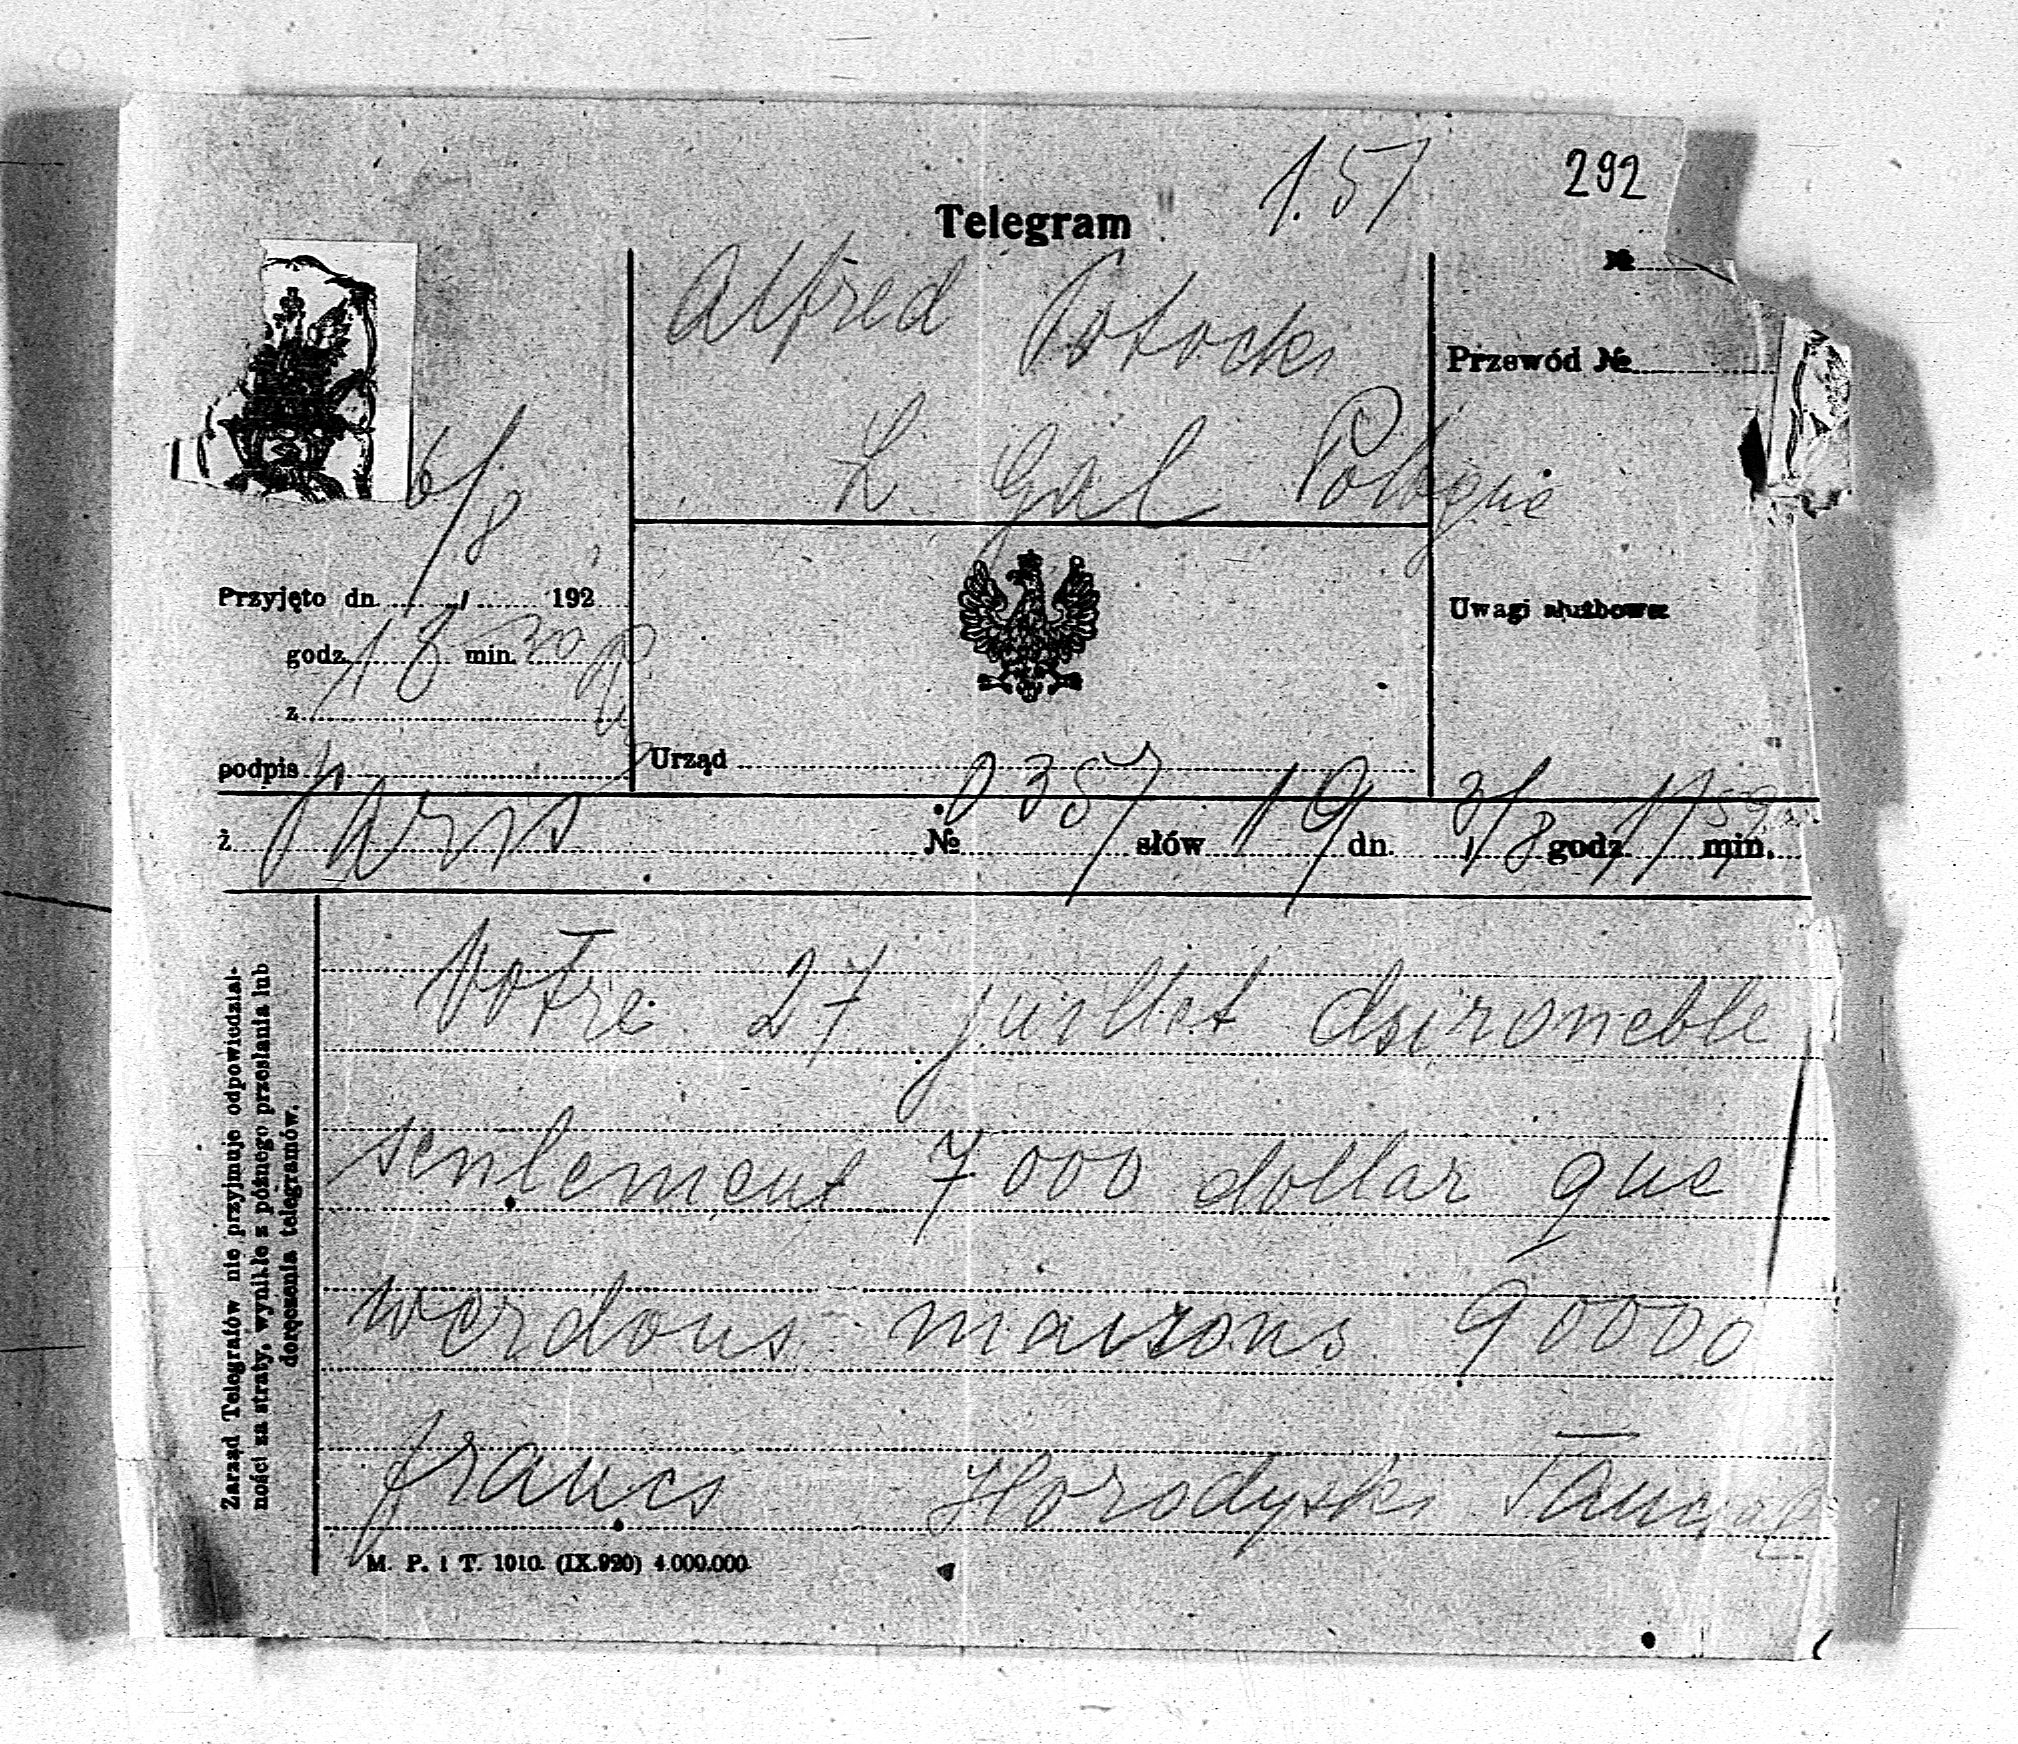 1.57
292
Telegram
№
Alfred Potocki
Przewód №
Ł Gal Pologne
6/8
Przyjęto dn. / 192
Uwagi służbowe:
godz. 18 min. 30
z
podpis
Urząd
z Paris № 0357 słów 19 dn. 3/8 godz. 11 min. 59
Votre 27 juillet dsironeble
senlement 7000 dollar que
werdous maisons 90000
francs Horodyski
Zarząd Telegrafów nie przyjmuje odpowiedzial-
ności za straty, wynikłe z późnego przesłania lub
doręczenia telegramów.
M. P. i T. 1010. (IX.920) 4.000.000.